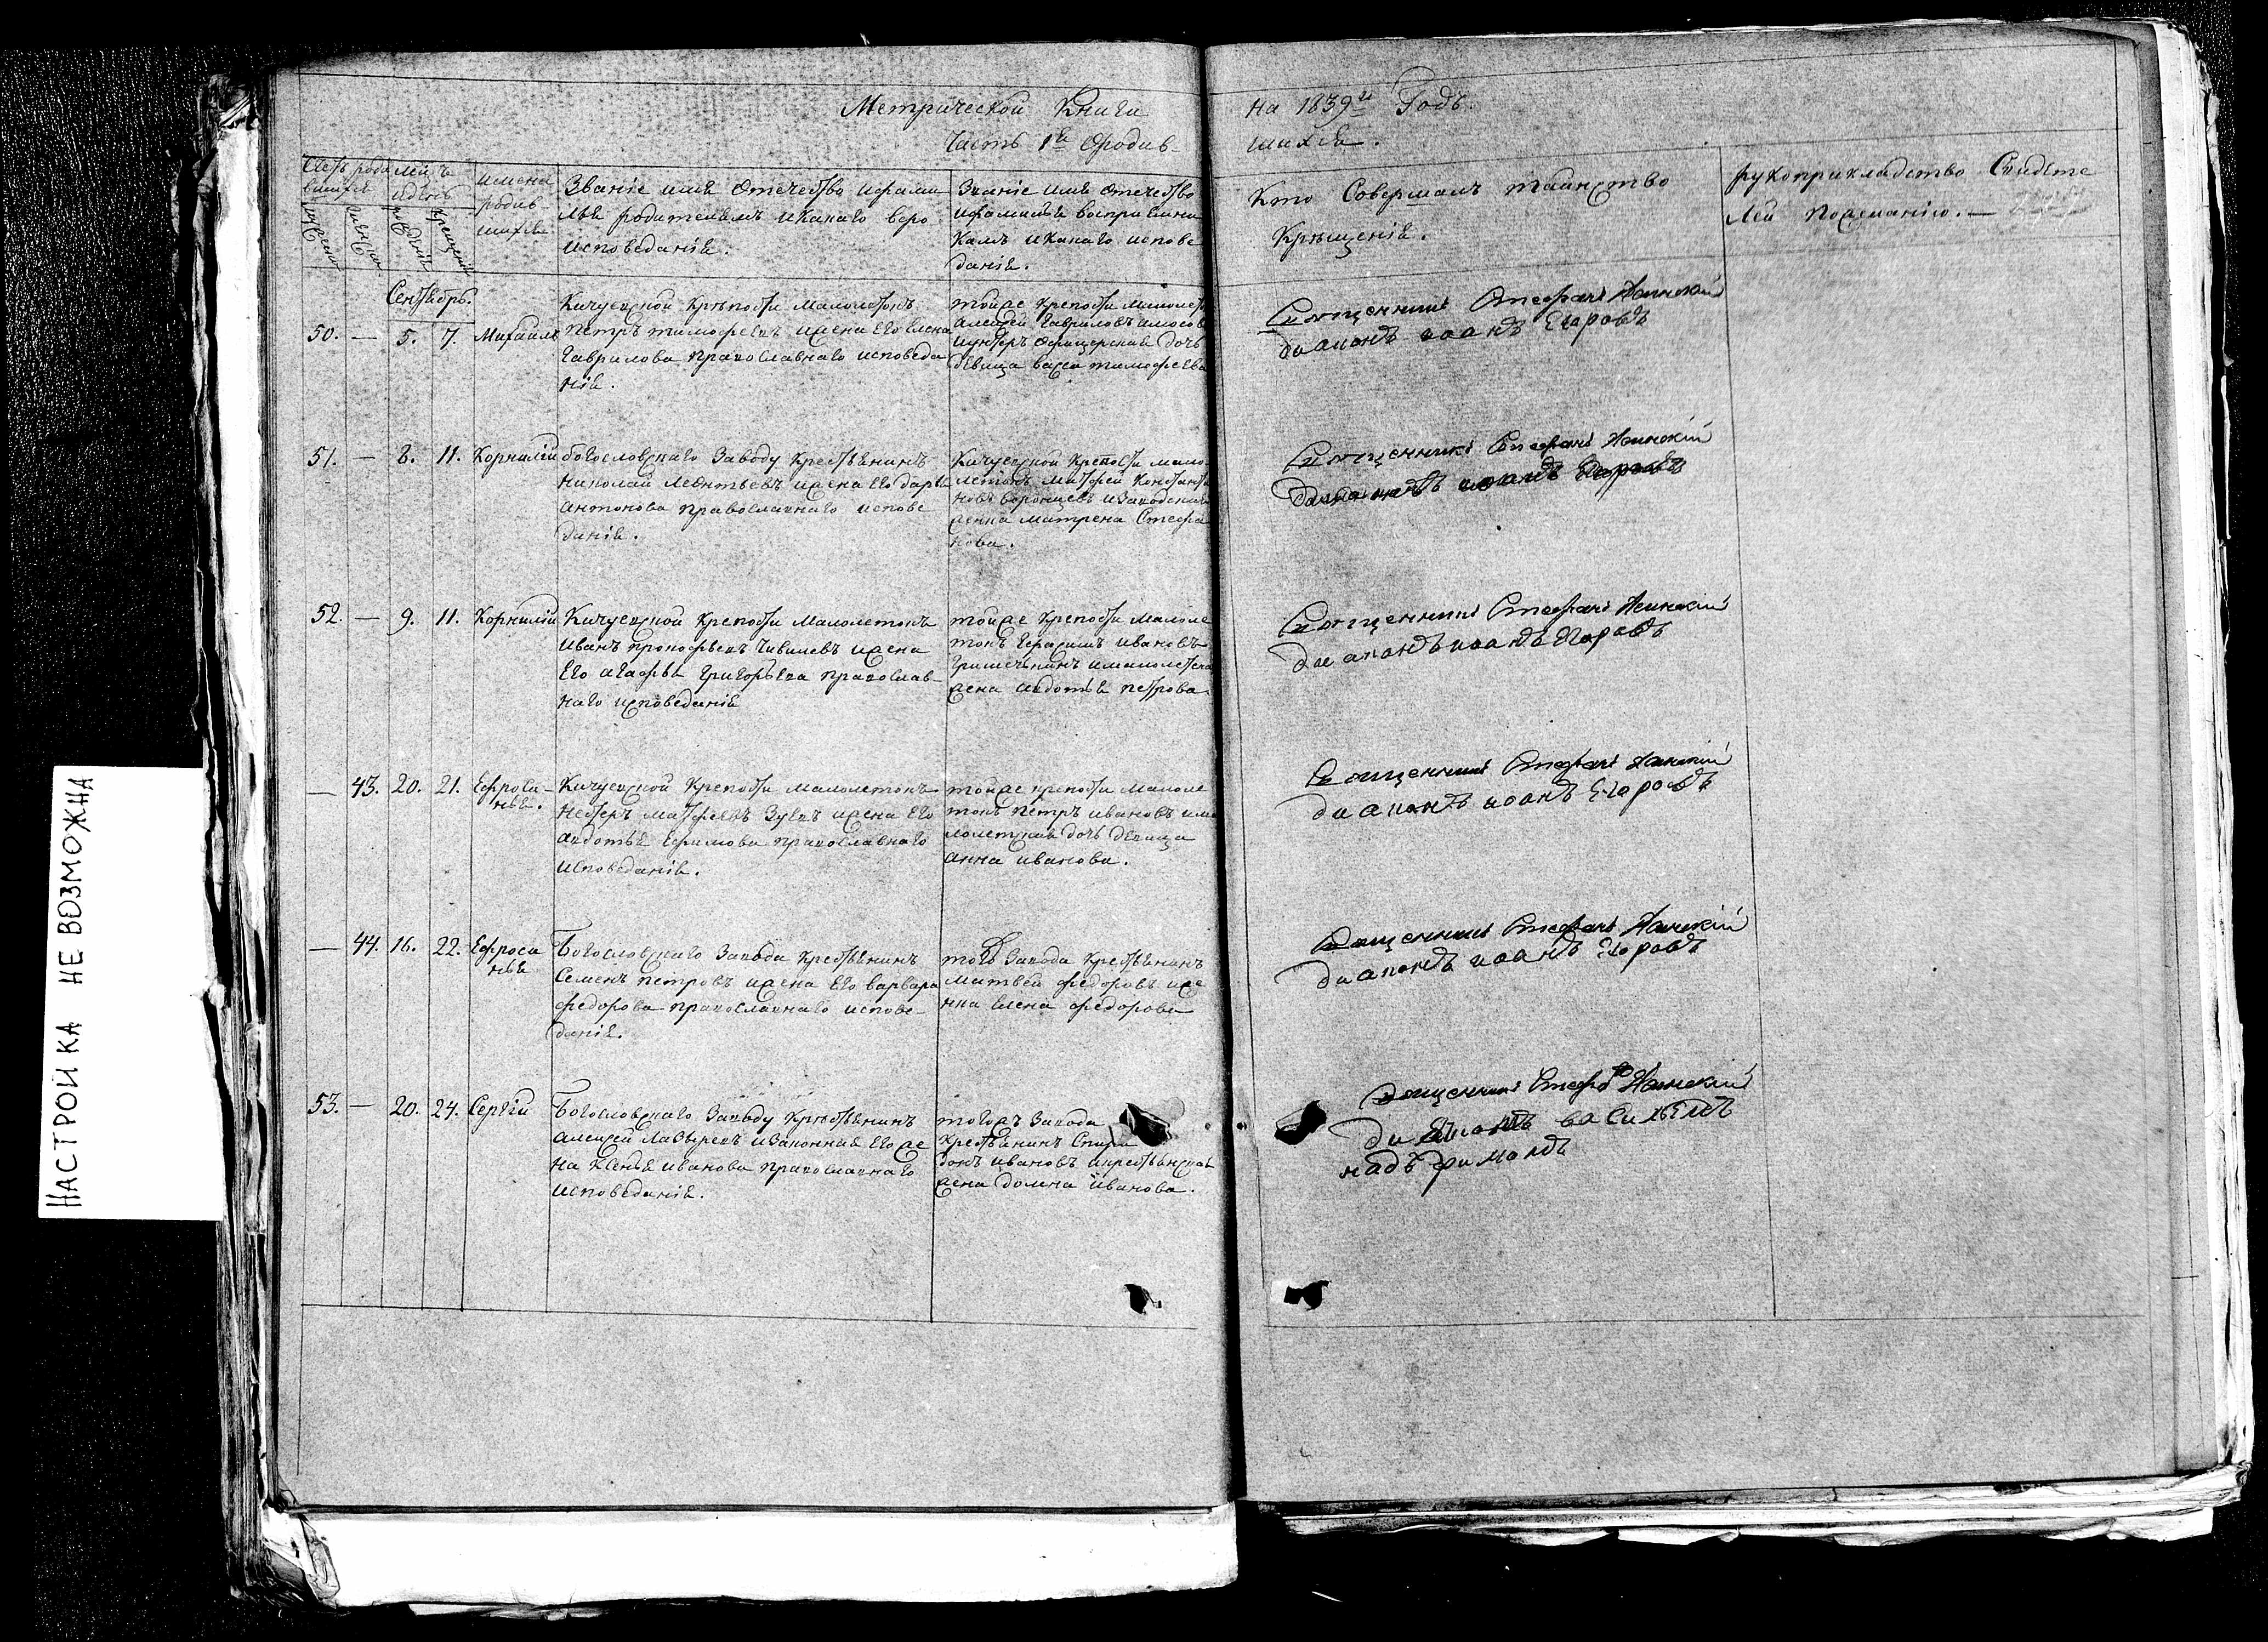 НАСТРОЙКА НЕ ВОЗМОЖНА
Метрической Книги
на 1839й Годъ.
Часть 1я Ородив-
шихся.
Имена
родив
шихся
Званіе имя Отечество ифами
лія родителемъ икакаго веро
исповеданія.
Званіе имя Отечество
ифамилія восприемни
камъ икакаго испове
данія.
Кто Совершалъ таинство
Крещенія.
рукоприкладство Свидете
лей пожеланію.
Сентябрь.
50. — 5. 7. Михаилъ
Кичуевской Крепости малолетокъ
Петръ тимофеевъ ижена Его Елена
Гаврилова православнаго исповеда
нія.
тойже крепости малолет
алексей Гавриловъ
иунтеръ Офицерская дочь
девица васса тимофеева
Священникъ Стефанъ
диаконъ иоанъ Егоровъ
51. — 8. 11. Корнилій
богословскаго Заводу крестьянинъ
Николай Леонтьевъ ижена Его дарья
антонова православнаго испове
данія.
Кичуевской крепости мало
летокъ матфей Констант
новъ воронцевъ изаводская
женка матрена Стефа
нова.
Священникъ Стефанъ
диаконъ иоанъ Егоровъ
52. — 9. 11. Корнилій
Кичуевской крепости малолетокъ
иванъ прокофьевъ Чивилевъ ижена
Его агафья Григорьева православ-
наго исповеданія
тойже крепости малоле
токъ Герасимъ ивановъ
Гришечкинъ ималолетска
жена авдотья петрова.
Священникъ Стефанъ
диаконъ иоанъ Егоровъ
— 43. 20. 21. Ефроси-
нья.
Кичуевской крепости малолетокъ
Нестеръ матфеевъ Зуевъ ижена Его
авдотья Ефимова православнаго
исповеданія.
тойже крепости малоле
токъ петръ ивановъ има
лолетская дочь девица
анна иванова.
Священникъ Стефанъ
диаконъ иоанъ Егоровъ
— 44. 16. 22. Ефроси
нья
Богословскаго Завода крестьянинъ
Семенъ петровъ ижена Его варвара
федорова православнаго испове-
данія.
того Завода крестьянинъ
матвей федоровъ иже
нка Елена федорова
Священникъ Стефанъ
диаконъ иоанъ Егоровъ
53. — 20. 24. Сергій
Богословскаго Заводу крестьянинъ
алексей Лазаревъ изаконная Его же
на Ксенья иванова православнаго
исповеданія.
тогожъ Завода
крестьянинъ Спири
донъ ивановъ икрестьянская
жена домна иванова.
Священникъ
василей